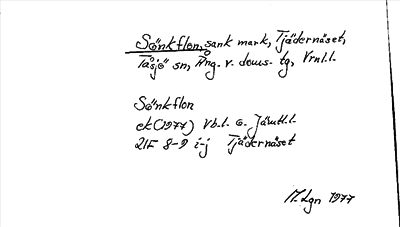 Sönkflon, sank mark, Tjädernäset,
Tåsjö sn, Ång. v. doms. tg, Vrnl.l.
Sönkflon
ek (1977) Vb.l. o. Jämtl.l.
21F 8-9 i-j Tjädernäset
M.Lgn 1977